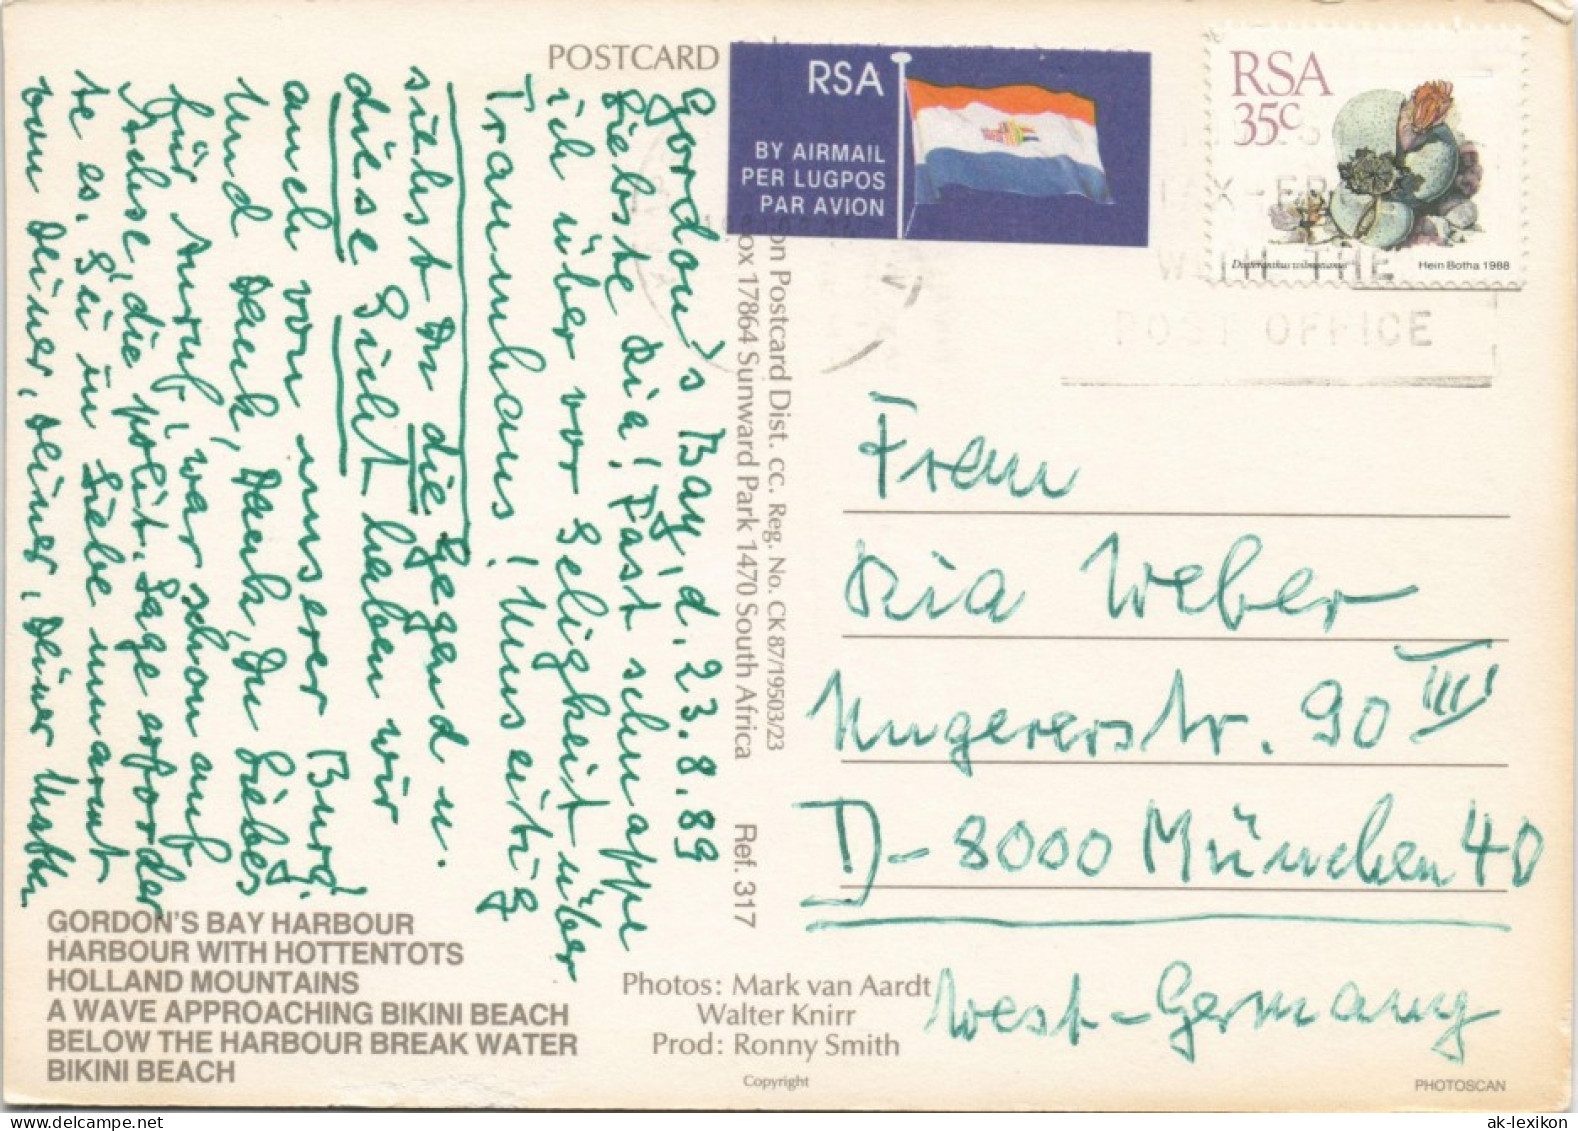 POSTCARD
RSA
BY AIRMAIL
PER LUGPOS
PAR AVION
RSA
35c
Hein Botha 1988
TAX-FR
WITH THE
POST OFFICE
Gordon's Bay, d. 23.8.89
Liebste Ria! Fast schnappe
ich über vor Seligkeit über
Traumhaus! Umseitig
siehst Du die Gegend u.
diese Sicht haben wir
auch von unserer Burg!
Und Dank, Dank, Du Liebes
für Anruf, war schon auf
Achse, die polit. Lage erforder
te es. Sei in Liebe umarmt
von Deiner, Deiner, Deiner
on Postcard Dist. cc. Reg. No. CK 87/19503/23
ox 17864 Sunward Park 1470 South Africa Ref. 317
Frau
Ria Weber
Ungererstr. 90 III
D-8000 München 40
West-Germany
GORDON'S BAY HARBOUR
HARBOUR WITH HOTTENTOTS
HOLLAND MOUNTAINS
A WAVE APPROACHING BIKINI BEACH
BELOW THE HARBOUR BREAK WATER
BIKINI BEACH
Photos: Mark van Aardt
Walter Knirr
Prod: Ronny Smith
Copyright
PHOTOSCAN
ak-lexikon